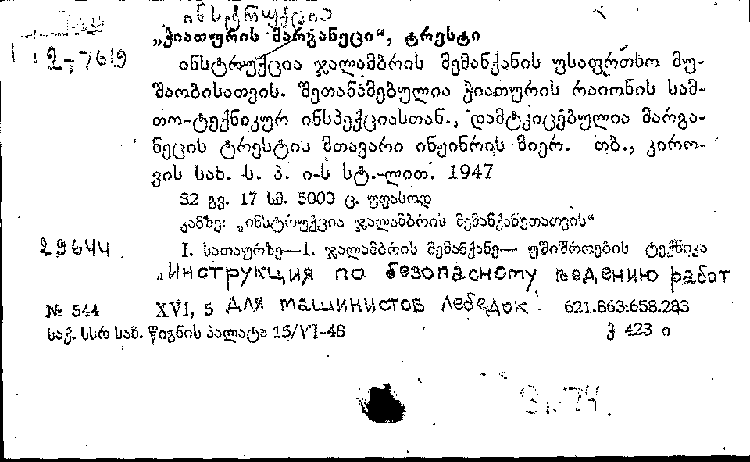 ინსტრუქცია
2-7619
„ჭიათურის მარგანეცი“, ტრესტი
ინსტრუქცია ჯალამბრის მემანქანის უსაფრთხო მუ-
შაობისათვის. შეთანხმებულია ჭიათურის რაიონის სამ-
თო-ტექნიკურ ინსპექციასთან., დამტკიცებულია მარგა-
ნეცის ტრესტის მთავარი ინჟინრის მიერ. თბ., კირო-
ვის სახ. ს. პ. ი-ს სტ.-ლით. 1947
32 გვ. 17 სმ. 5000 ც. უფასოდ
კანზე: „ინსტრუქცია ჯალამბრის მემანქანეთათვის“
29644 I. სათაურზე—1. ჯალამბრის მემანქანე— უშიშროების ტექნიკა
„Инструкция по безопасному ведению работ
для машинистов лебедок
№ 544 XVI, 5 621.863:658.283
საქ. სსრ სახ. წიგნის პალატა 15/VI-48 ჭ 423 ი